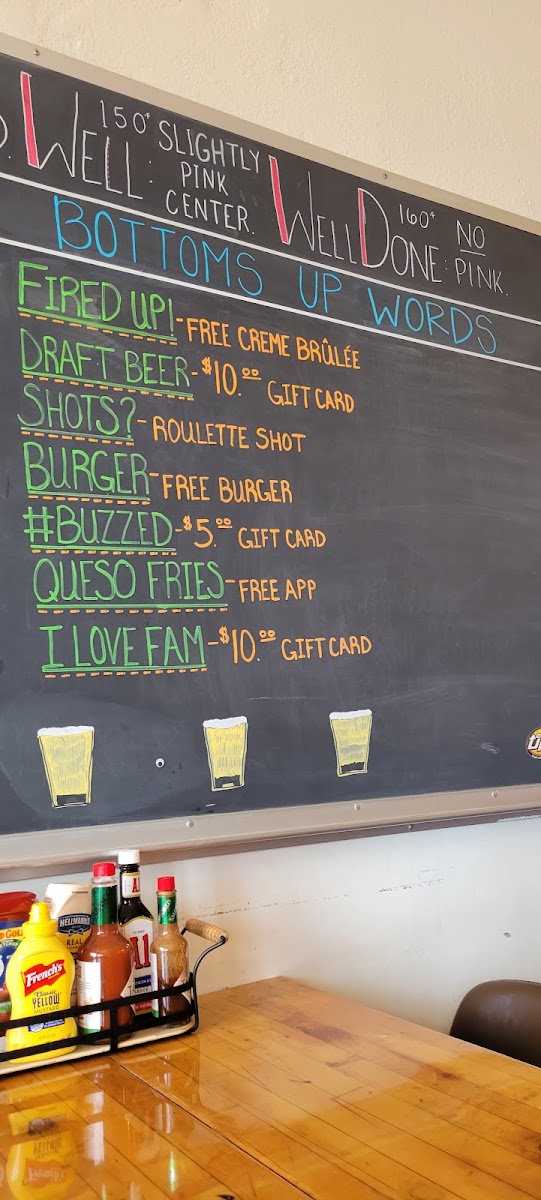 WELL: 150° SLIGHTLY PINK CENTER.
WELL DONE: 160° NO PINK.
BOTTOMS UP WORDS
FIRED UP! - FREE CREME BRÛLÉE
DRAFT BEER - $10.00 GIFT CARD
SHOTS? - ROULETTE SHOT
BURGER - FREE BURGER
#BUZZED - $5.00 GIFT CARD
QUESO FRIES - FREE APP
I LOVE FAM - $10.00 GIFT CARD
HELLMANN'S
REAL
A1
French's
Classic
YELLOW
MUSTARD